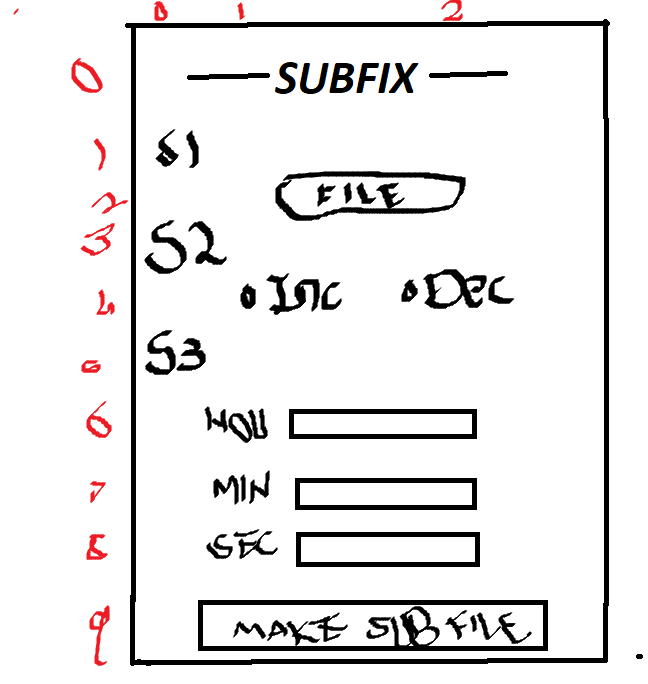 0 1 2
0 SUBFIX
1 S1
2 FILE
3 S2
4 INC DEC
5 S3
6 HOU
7 MIN
8 SEC
9 MAKE SUB FILE